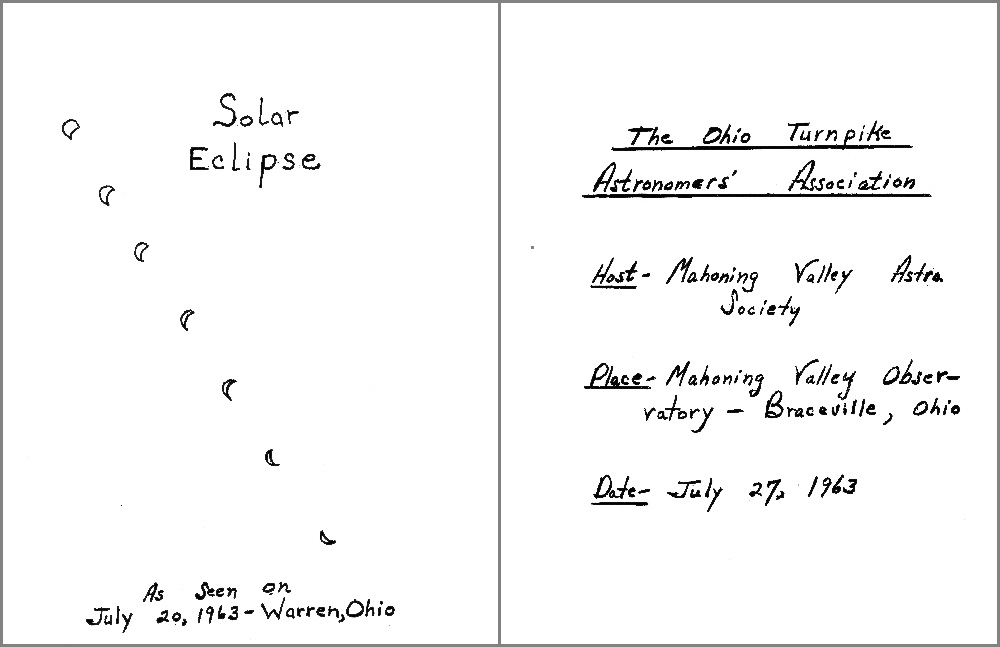 Solar
Eclipse
As Seen on
July 20, 1963 - Warren, Ohio
The Ohio Turnpike
Astronomers' Association
Host - Mahoning Valley Astro.
Society
Place - Mahoning Valley Obser-
vatory - Braceville, Ohio
Date - July 27, 1963